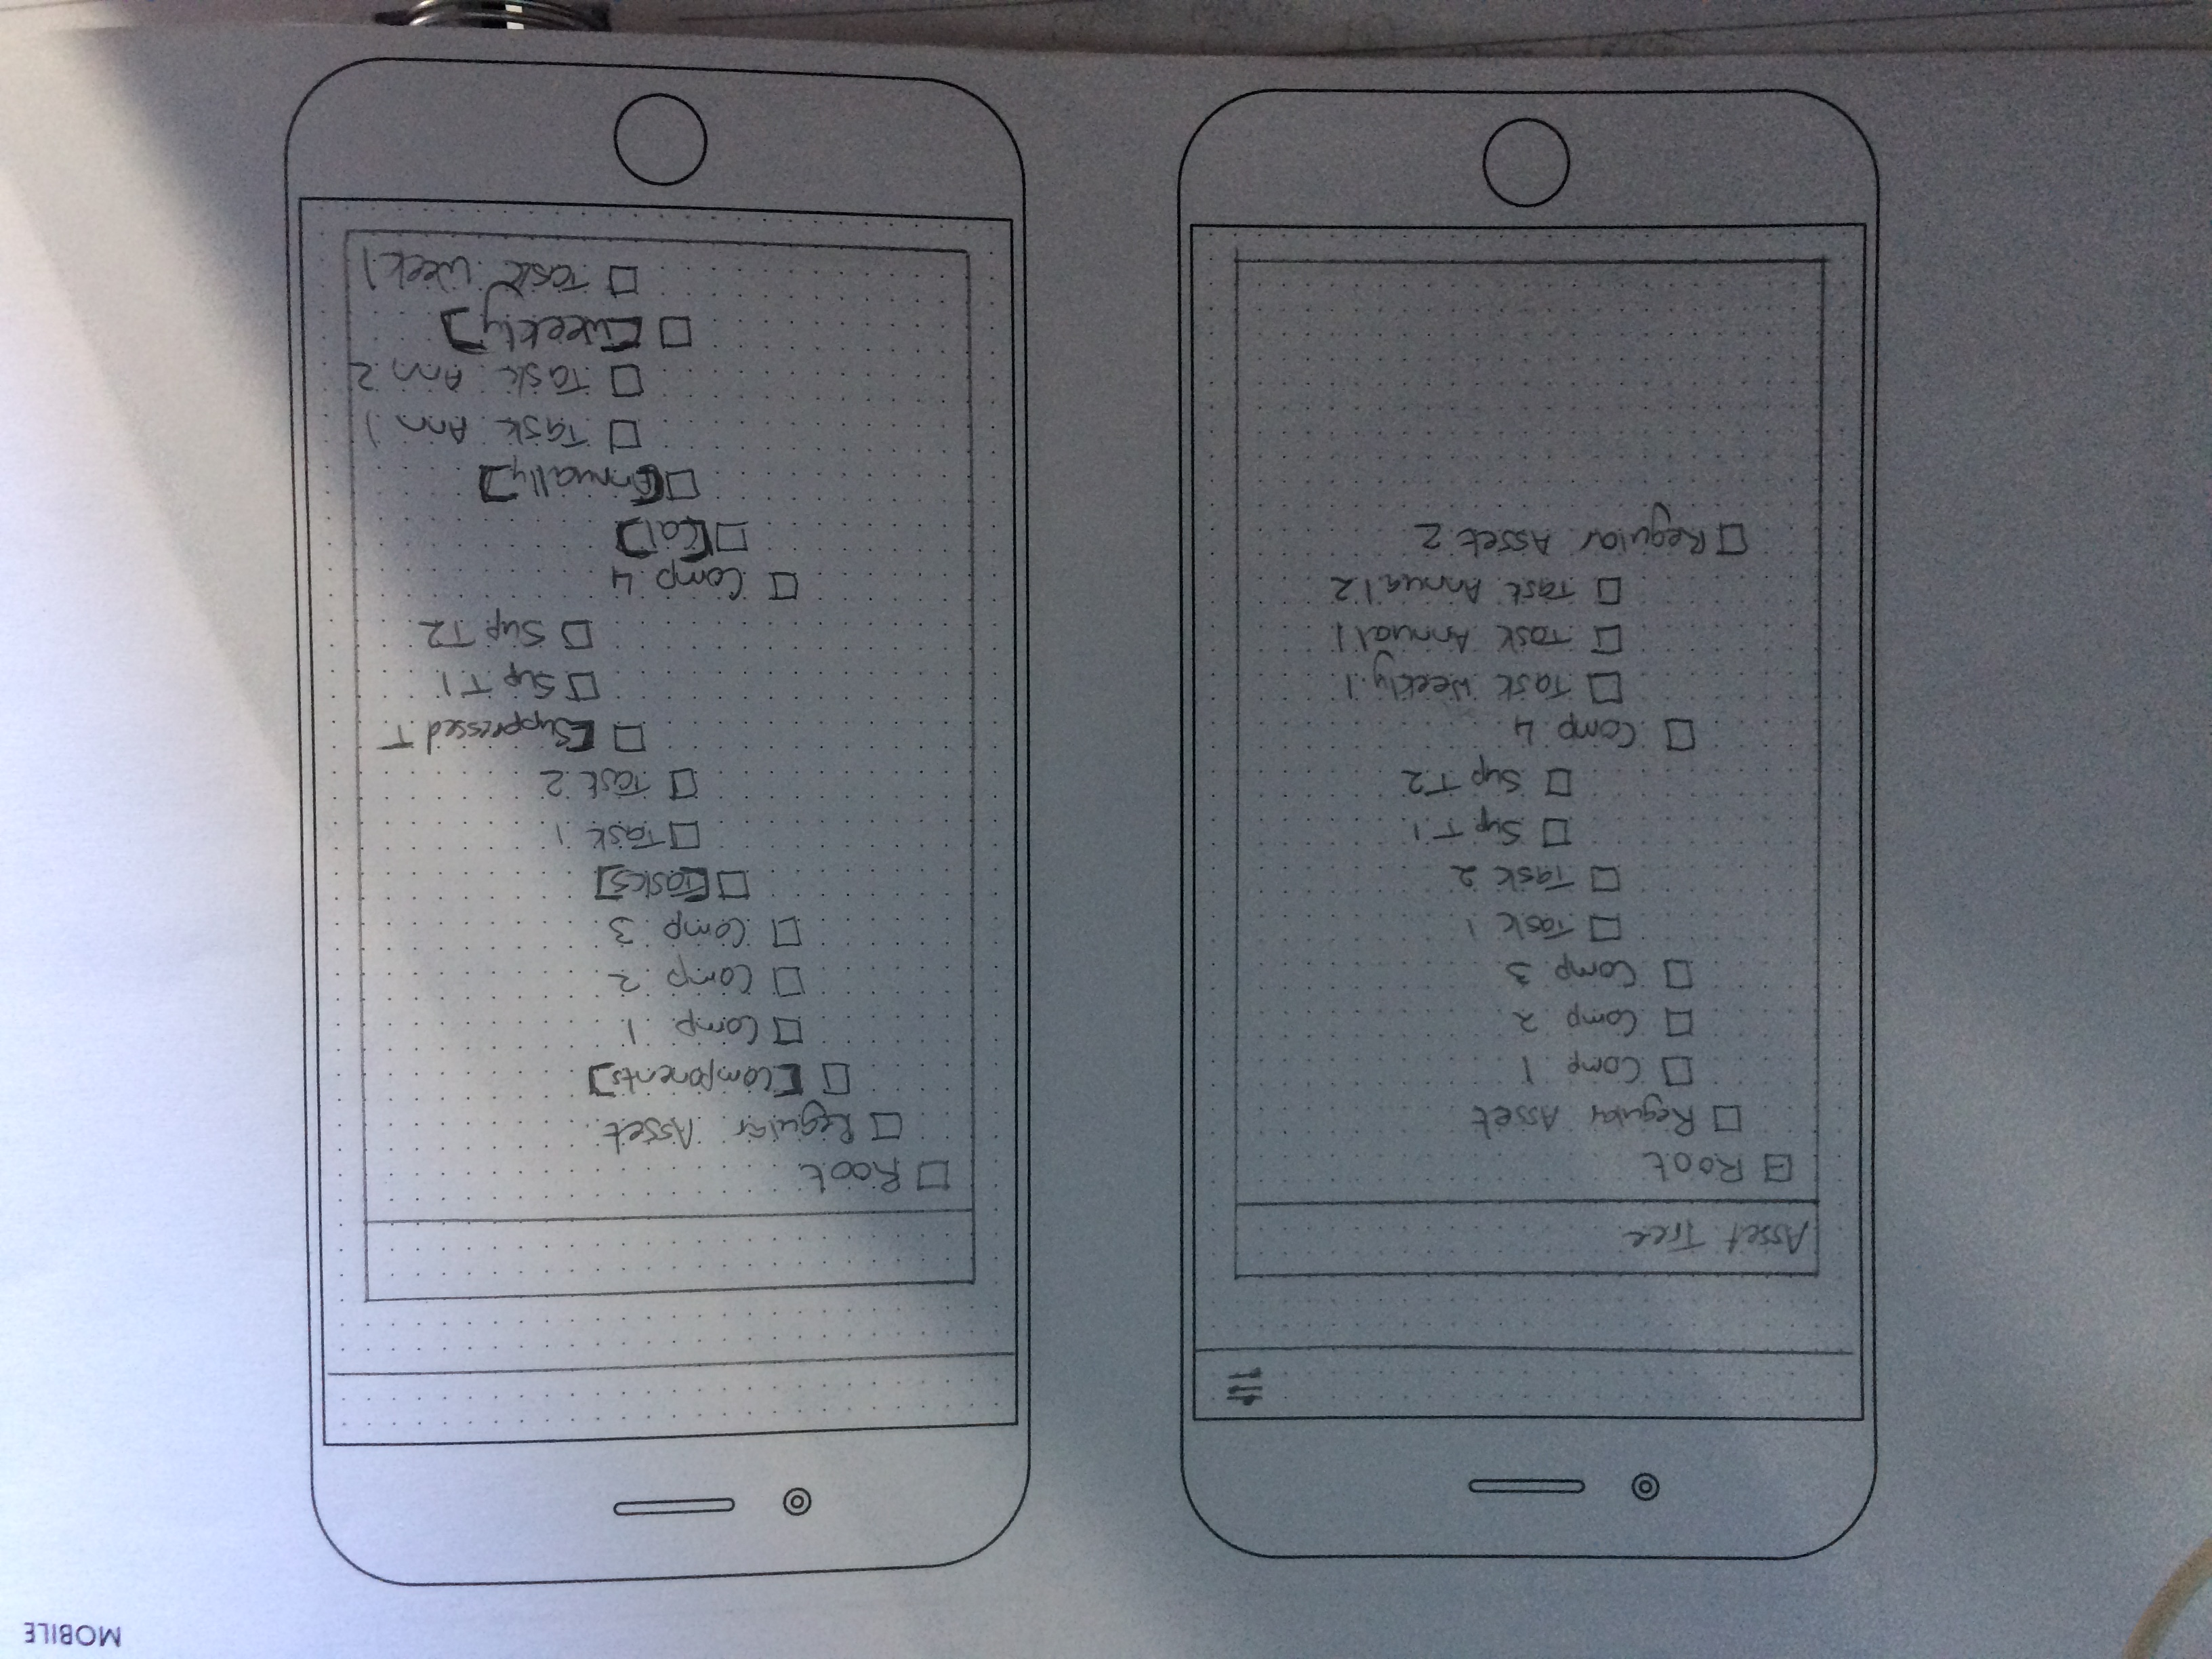 MOBILE
Asset Tree
Root
Regular Asset
Comp 1
Comp 2
Comp 3
Task 1
Task 2
Sup T 1
Sup T2
Comp 4
Task Weekly 1
Task Annual 1
Task Annual 2
Regular Asset 2
Root
Regular Asset
[Components]
Comp 1
Comp 2
Comp 3
[Tasks]
Task 1
Task 2
[Suppressed T
Sup T1
Sup T2
Comp 4
[Cal]
[Annually]
Task Ann 1
Task Ann 2
[Weekly]
Task Week 1